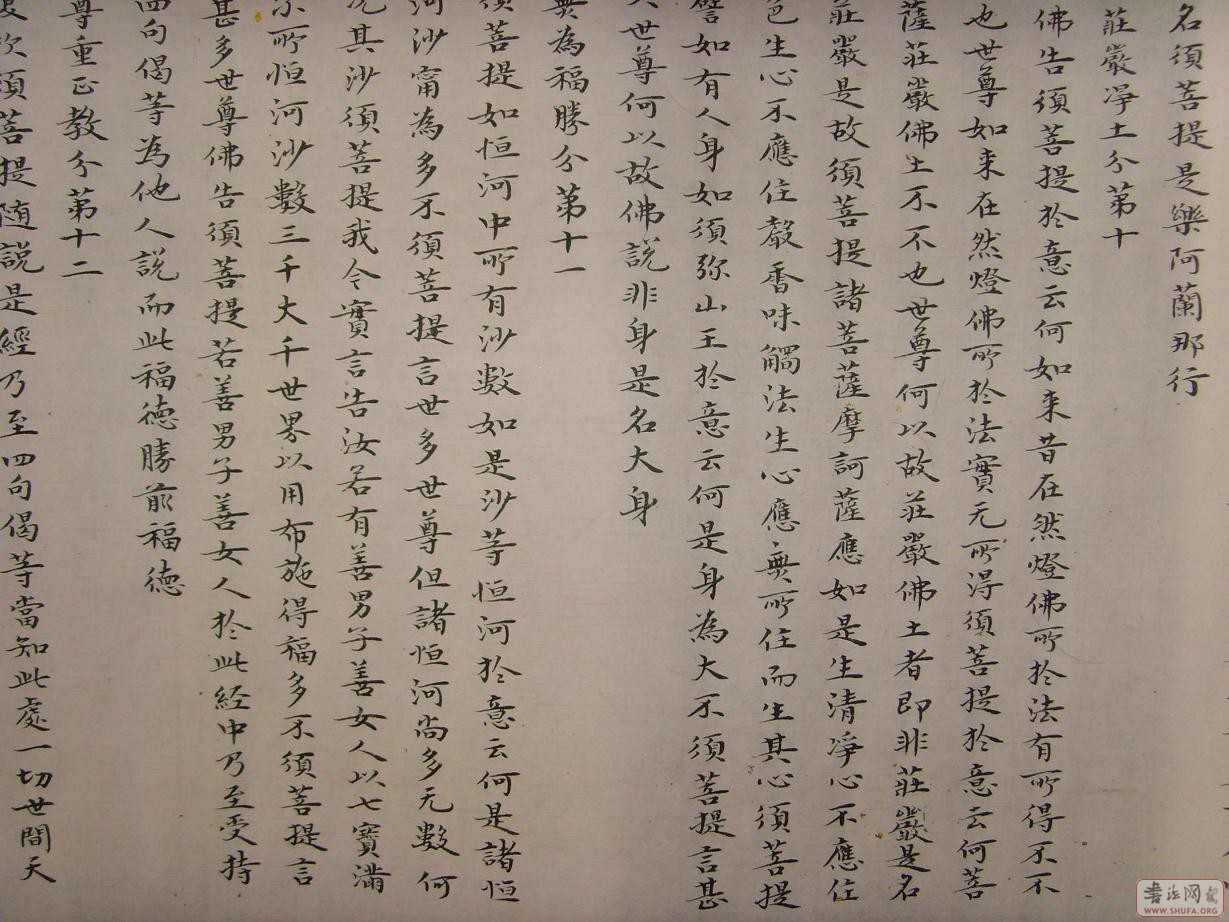 名須菩提是樂阿蘭那行
莊嚴淨土分第十
佛告須菩提於意云何如来昔在然燈佛所於法有所得不不
也世尊如来在然燈佛所於法實无所得須菩提於意云何菩
薩莊嚴佛土不不也世尊何以故莊嚴佛土者即非莊嚴是名
莊嚴是故須菩提諸菩薩摩訶薩應如是生清淨心不應住
色生心不應住聲香味觸法生心應無所住而生其心須菩提
譬如有人身如須弥山王於意云何是身為大不須菩提言甚
大世尊何以故佛説非身是名大身
無為福勝分第十一
須菩提如恒河中所有沙數如是沙等恒河於意云何是諸恒
河沙寗為多不須菩提言甚多世尊但諸恒河尚多无數何
况其沙須菩提我今實言告汝若有善男子善女人以七寶滿
尔所恒河沙數三千大千世界以用布施得福多不須菩提言
甚多世尊佛告須菩提若善男子善女人於此経中乃至受持
四句偈等為他人説而此福德勝前福德
尊重正教分第十二
復次須菩提随説是經乃至四句偈等當知此處一切世間天
書法网
WWW.SHUFA.ORG